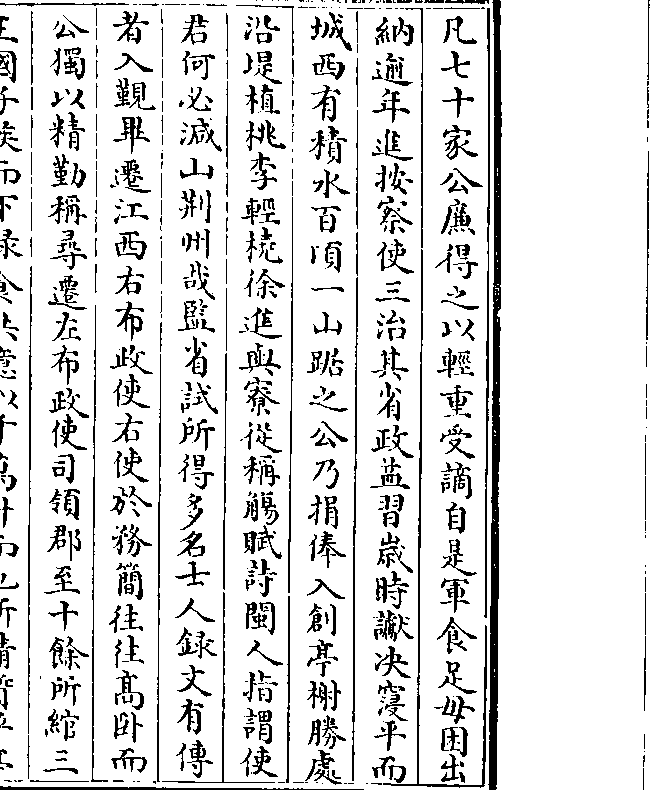 凡七十家公廉得之以輕重受謫自是軍食足毋困出
納逾年進按察使三治其省政益習歲時讞决寖平而
城西有積水百頃一山踞之公乃捐俸入創亭榭勝處
沿堤植桃李輕橈徐進與寮從稱觴賦詩閩人指謂使
君何必减山荆州哉監省試所得多名士人録文有傳
者入覲畢遷江西右布政使右使於務簡往往髙卧而
公獨以精勤稱尋遷左布政使司領郡至十餘所綰三
王國千